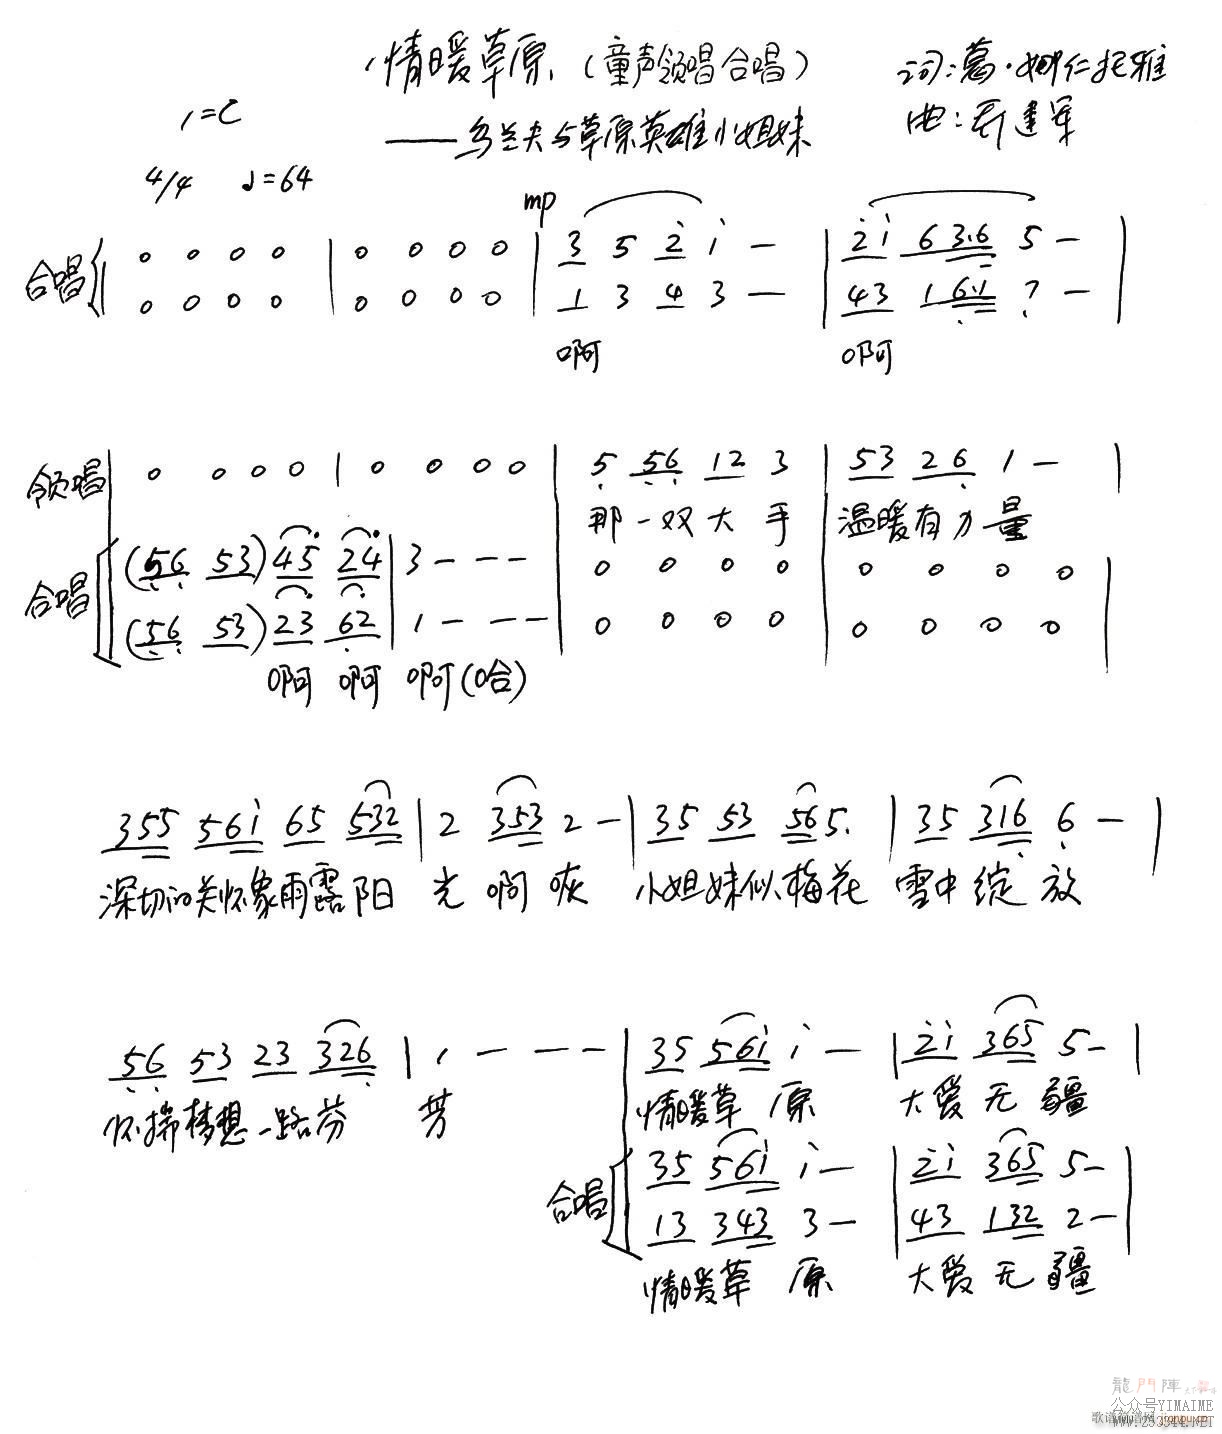 情暖草原（童声领唱合唱）
——乌兰夫与草原英雄小姐妹
词：葛·娜仁托雅
曲：乔建军
1=C
4/4 ♩=64
mp
合唱 0 0 0 0 | 0 0 0 0 | 3 5 2̇ 1̇ — | 2̇1̇ 6 3.6 5 — |
0 0 0 0 | 0 0 0 0 | 1 3 4 3 — | 43 1 6.1 7 — |
啊 啊
领唱 0 0 0 0 | 0 0 0 0 | 5 56 12 3 | 53 26 1 — |
那一双大手 温暖有力量
合唱 (56 53) 45 24 | 3 — — — | 0 0 0 0 | 0 0 0 0 |
(56 53) 23 62 | 1 — — — | 0 0 0 0 | 0 0 0 0 |
啊 啊 啊(哈)
355 561̇ 65 532 | 2 353 2 — | 35 53 56 5. | 35 316 6 — |
深切的关怀象雨露阳 光 啊 咴 小姐妹似梅花 雪中绽 放
56 53 23 326 | 1 — — — | 35 561̇ 1̇ — | 2̇1̇ 365 5 — |
怀揣梦想一路芬 芳 情暖草 原 大爱无疆
合唱 35 561̇ 1̇ — | 2̇1̇ 365 5 — |
13 343 3 — | 43 132 2 — |
情暖草 原 大爱无疆
龍門陣
公众号YIMAIME